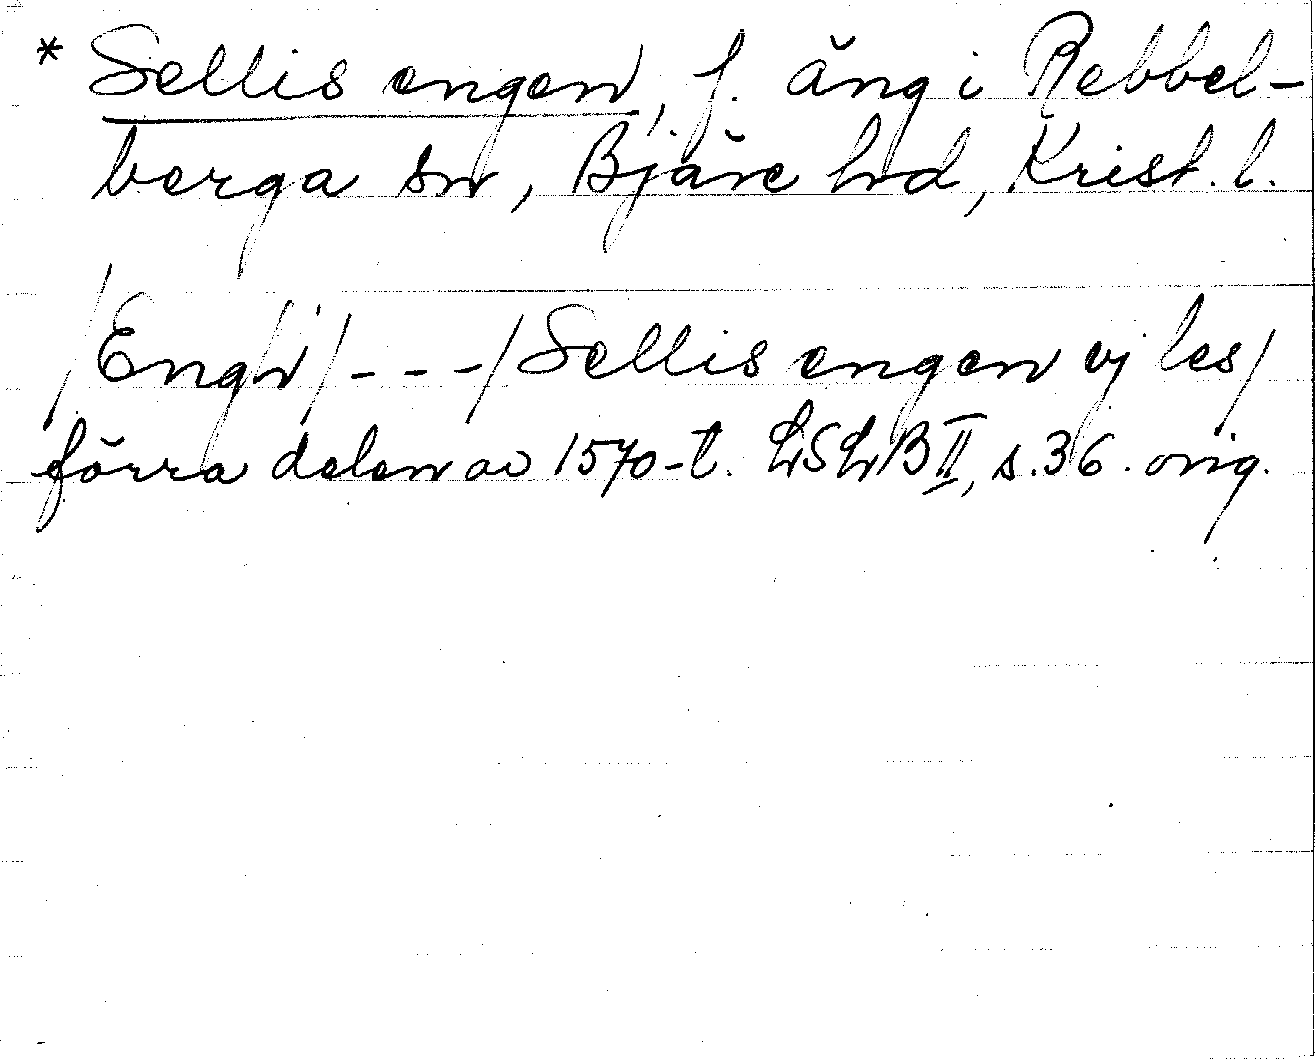 * Sellis engen, f. äng i Rebbel-
berga sn, Bjäre hd, Krist. l.
/Engh/ - - - / Sellis engen vj les/
förra delen av 1570-t. LSLB II, s. 36. orig.